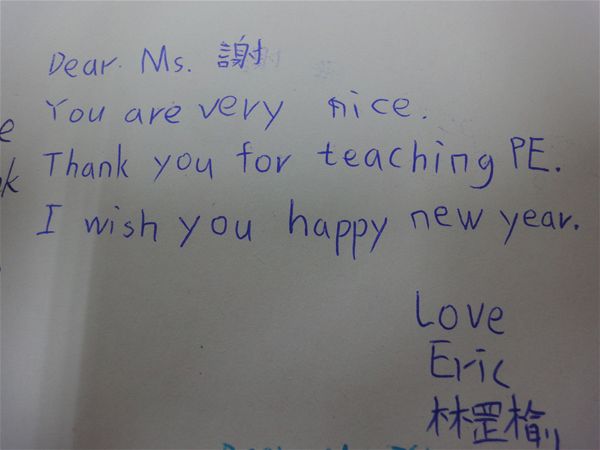 Dear Ms. 謝
You are very nice.
Thank you for teaching PE.
I wish you happy new year.
Love
Eric
林罡榆